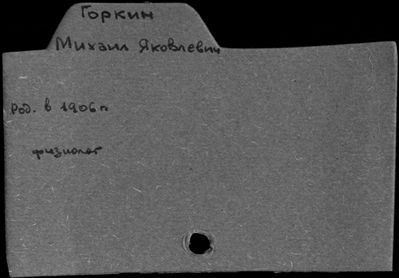 Горкин
Михаил Яковлевич
Род. в 1906 г.
физиолог